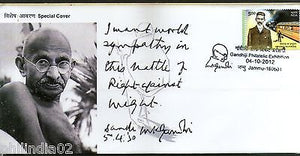 विशेष आवरण Special Cover
I want world
sympathy in
this battle of
Right against
might.
Sandi MKGandhi
5.4.30
Gandhiji Philatelic Exhibition
04-10-2012
philaindia02